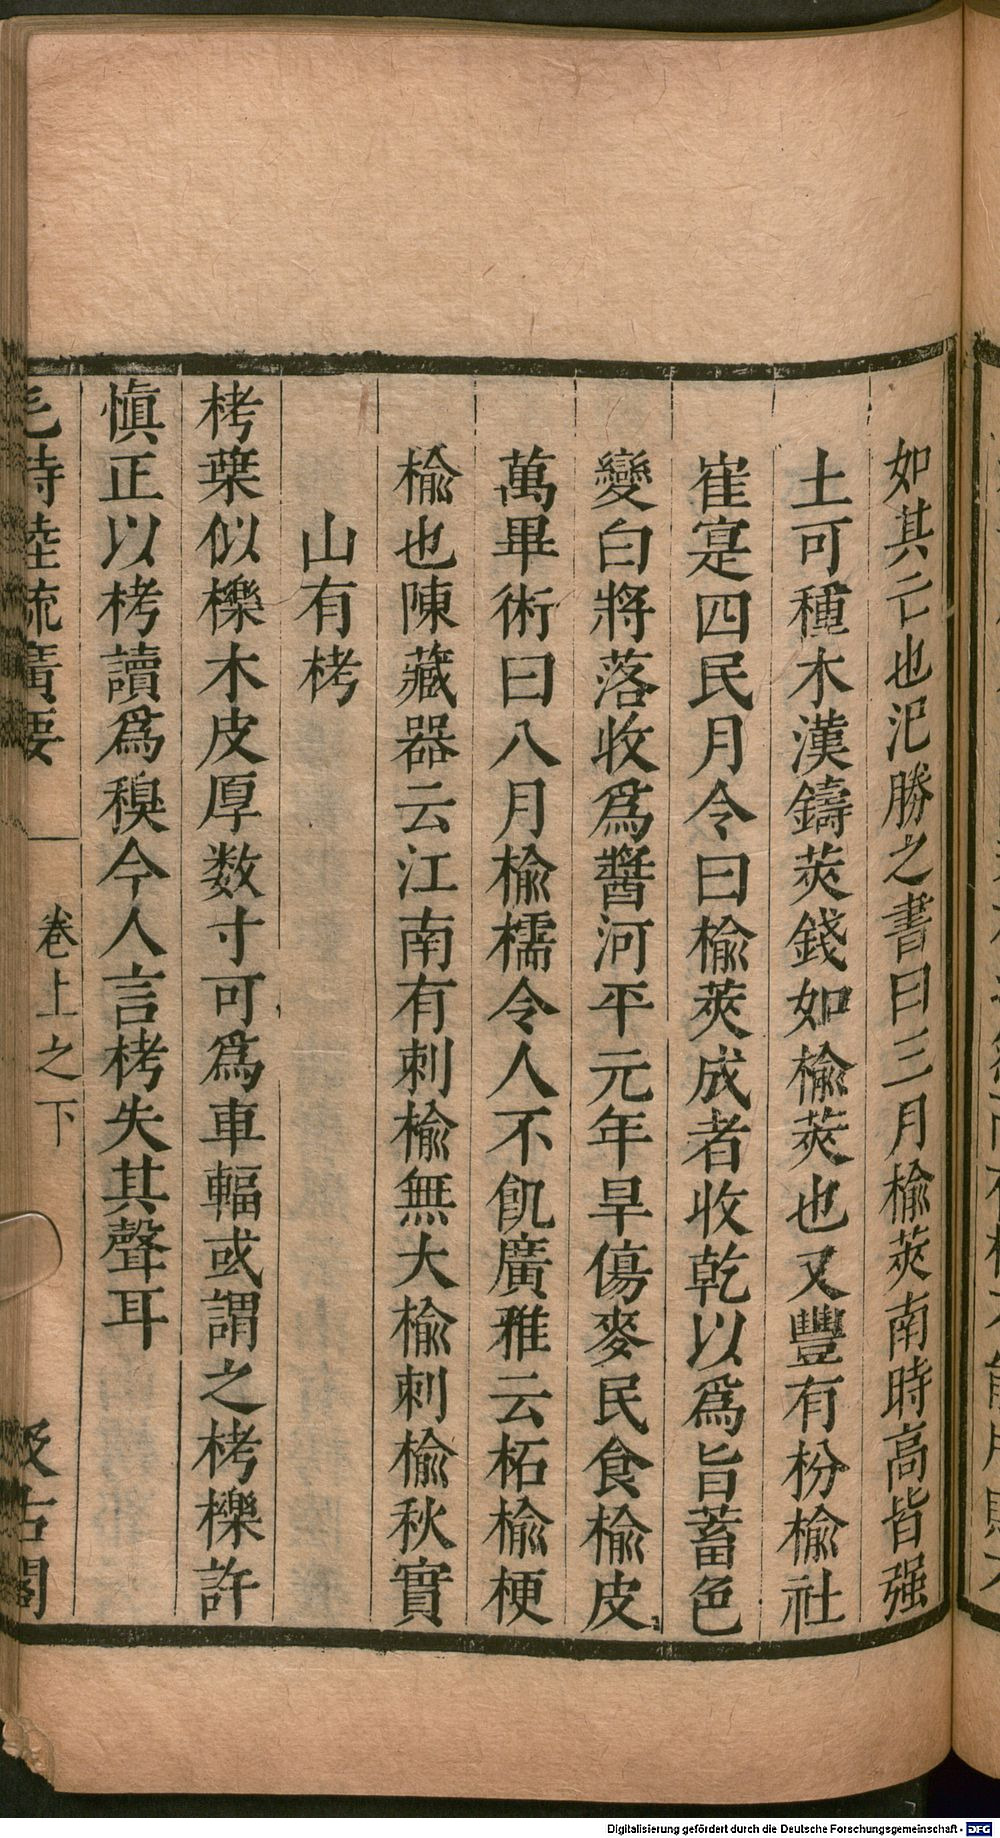 如其亡也氾勝之書曰三月榆莢南時高皆强
土可種木漢鑄莢錢如榆莢也又豐有枌榆社
崔寔四民月令曰榆莢成者收乾以爲旨蓄色
變白將落收爲醬河平元年旱傷麥民食榆皮
萬畢術曰八月榆檽令人不飢廣雅云柘榆梗
榆也陳藏器云江南有刺榆無大榆刺榆秋實
山有栲
栲葉似櫟木皮厚数寸可爲車輻或謂之栲櫟許
慎正以栲讀爲糗今人言栲失其聲耳
毛詩陸疏廣要 卷上之下 汲古閣
Digitalisierung gefördert durch die Deutsche Forschungsgemeinschaft - DFG